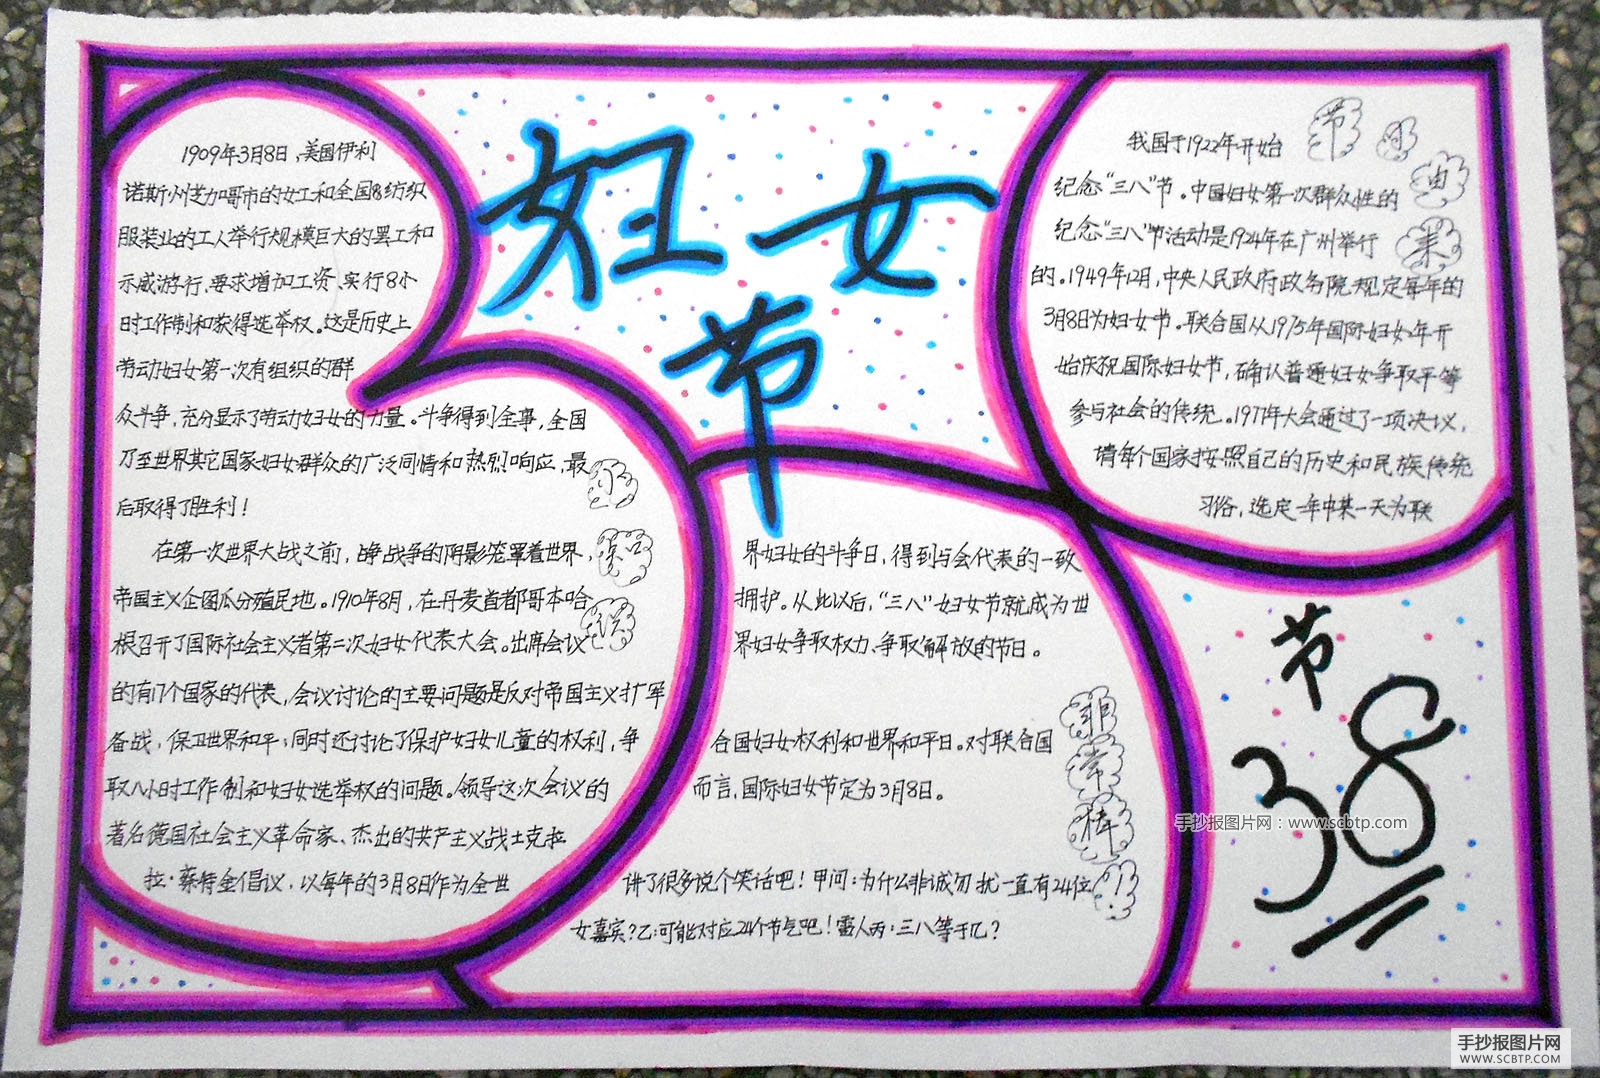 妇女
节
1909年3月8日，美国伊利
诺斯州芝加哥市的女工和全国纺织
服装业的工人举行规模巨大的罢工和
示威游行，要求增加工资，实行8小
时工作制和获得选举权。这是历史上
劳动妇女第一次有组织的群
众斗争，充分显示了劳动妇女的力量。斗争得到全事，全国
乃至世界其它国家妇女群众的广泛同情和热烈响应，最
后取得了胜利！
在第一次世界大战之前，战争的阴影笼罩着世界，
帝国主义企图瓜分殖民地。1910年8月，在丹麦首都哥本哈
根召开了国际社会主义者第二次妇女代表大会。出席会议
的有17个国家的代表，会议讨论的主要问题是反对帝国主义扩军
备战，保卫世界和平；同时还讨论了保护妇女儿童的权利，争
取八小时工作制和妇女选举权的问题。领导这次会议的
著名德国社会主义革命家、杰出的共产主义战士克拉
拉·蔡特金倡议，以每年的3月8日作为全世
界妇女的斗争日，得到与会代表的一致
拥护。从此以后，“三八”妇女节就成为世
界妇女争取权力、争取解放的节日。
节
由
来
我国于1922年开始
纪念“三八”节。中国妇女第一次群众性的
纪念“三八”节活动是1924年在广州举行
的。1949年12月，中央人民政府政务院规定每年的
3月8日为妇女节。联合国从1975年国际妇女年开
始庆祝国际妇女节，确认普通妇女争取平等
参与社会的传统。1977年大会通过了一项决议，
请每个国家按照自己的历史和民族传统
习俗，选定一年中某一天为联
合国妇女权利和世界和平日。对联合国
而言，国际妇女节定为3月8日。
非
常
棒
！
讲了很多说个笑话吧！甲问：为什么非诚勿扰一直有24位
女嘉宾？乙：可能对应24个节气吧！雷人丙：三八等于几？
节
38
手抄报图片网：www.scbtp.com
手抄报图片网
WWW.SCBTP.COM